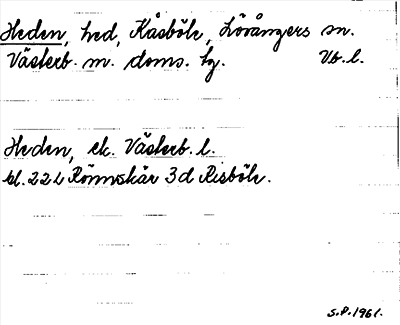 Heden, hed, Kåsböle, Lövångers sn.
Västerb. m. doms. hg. Vb. l.
Heden, ek. Västerb. l.
bl. 22L Rönnskär 3d Risböle.
S.P. 1961.